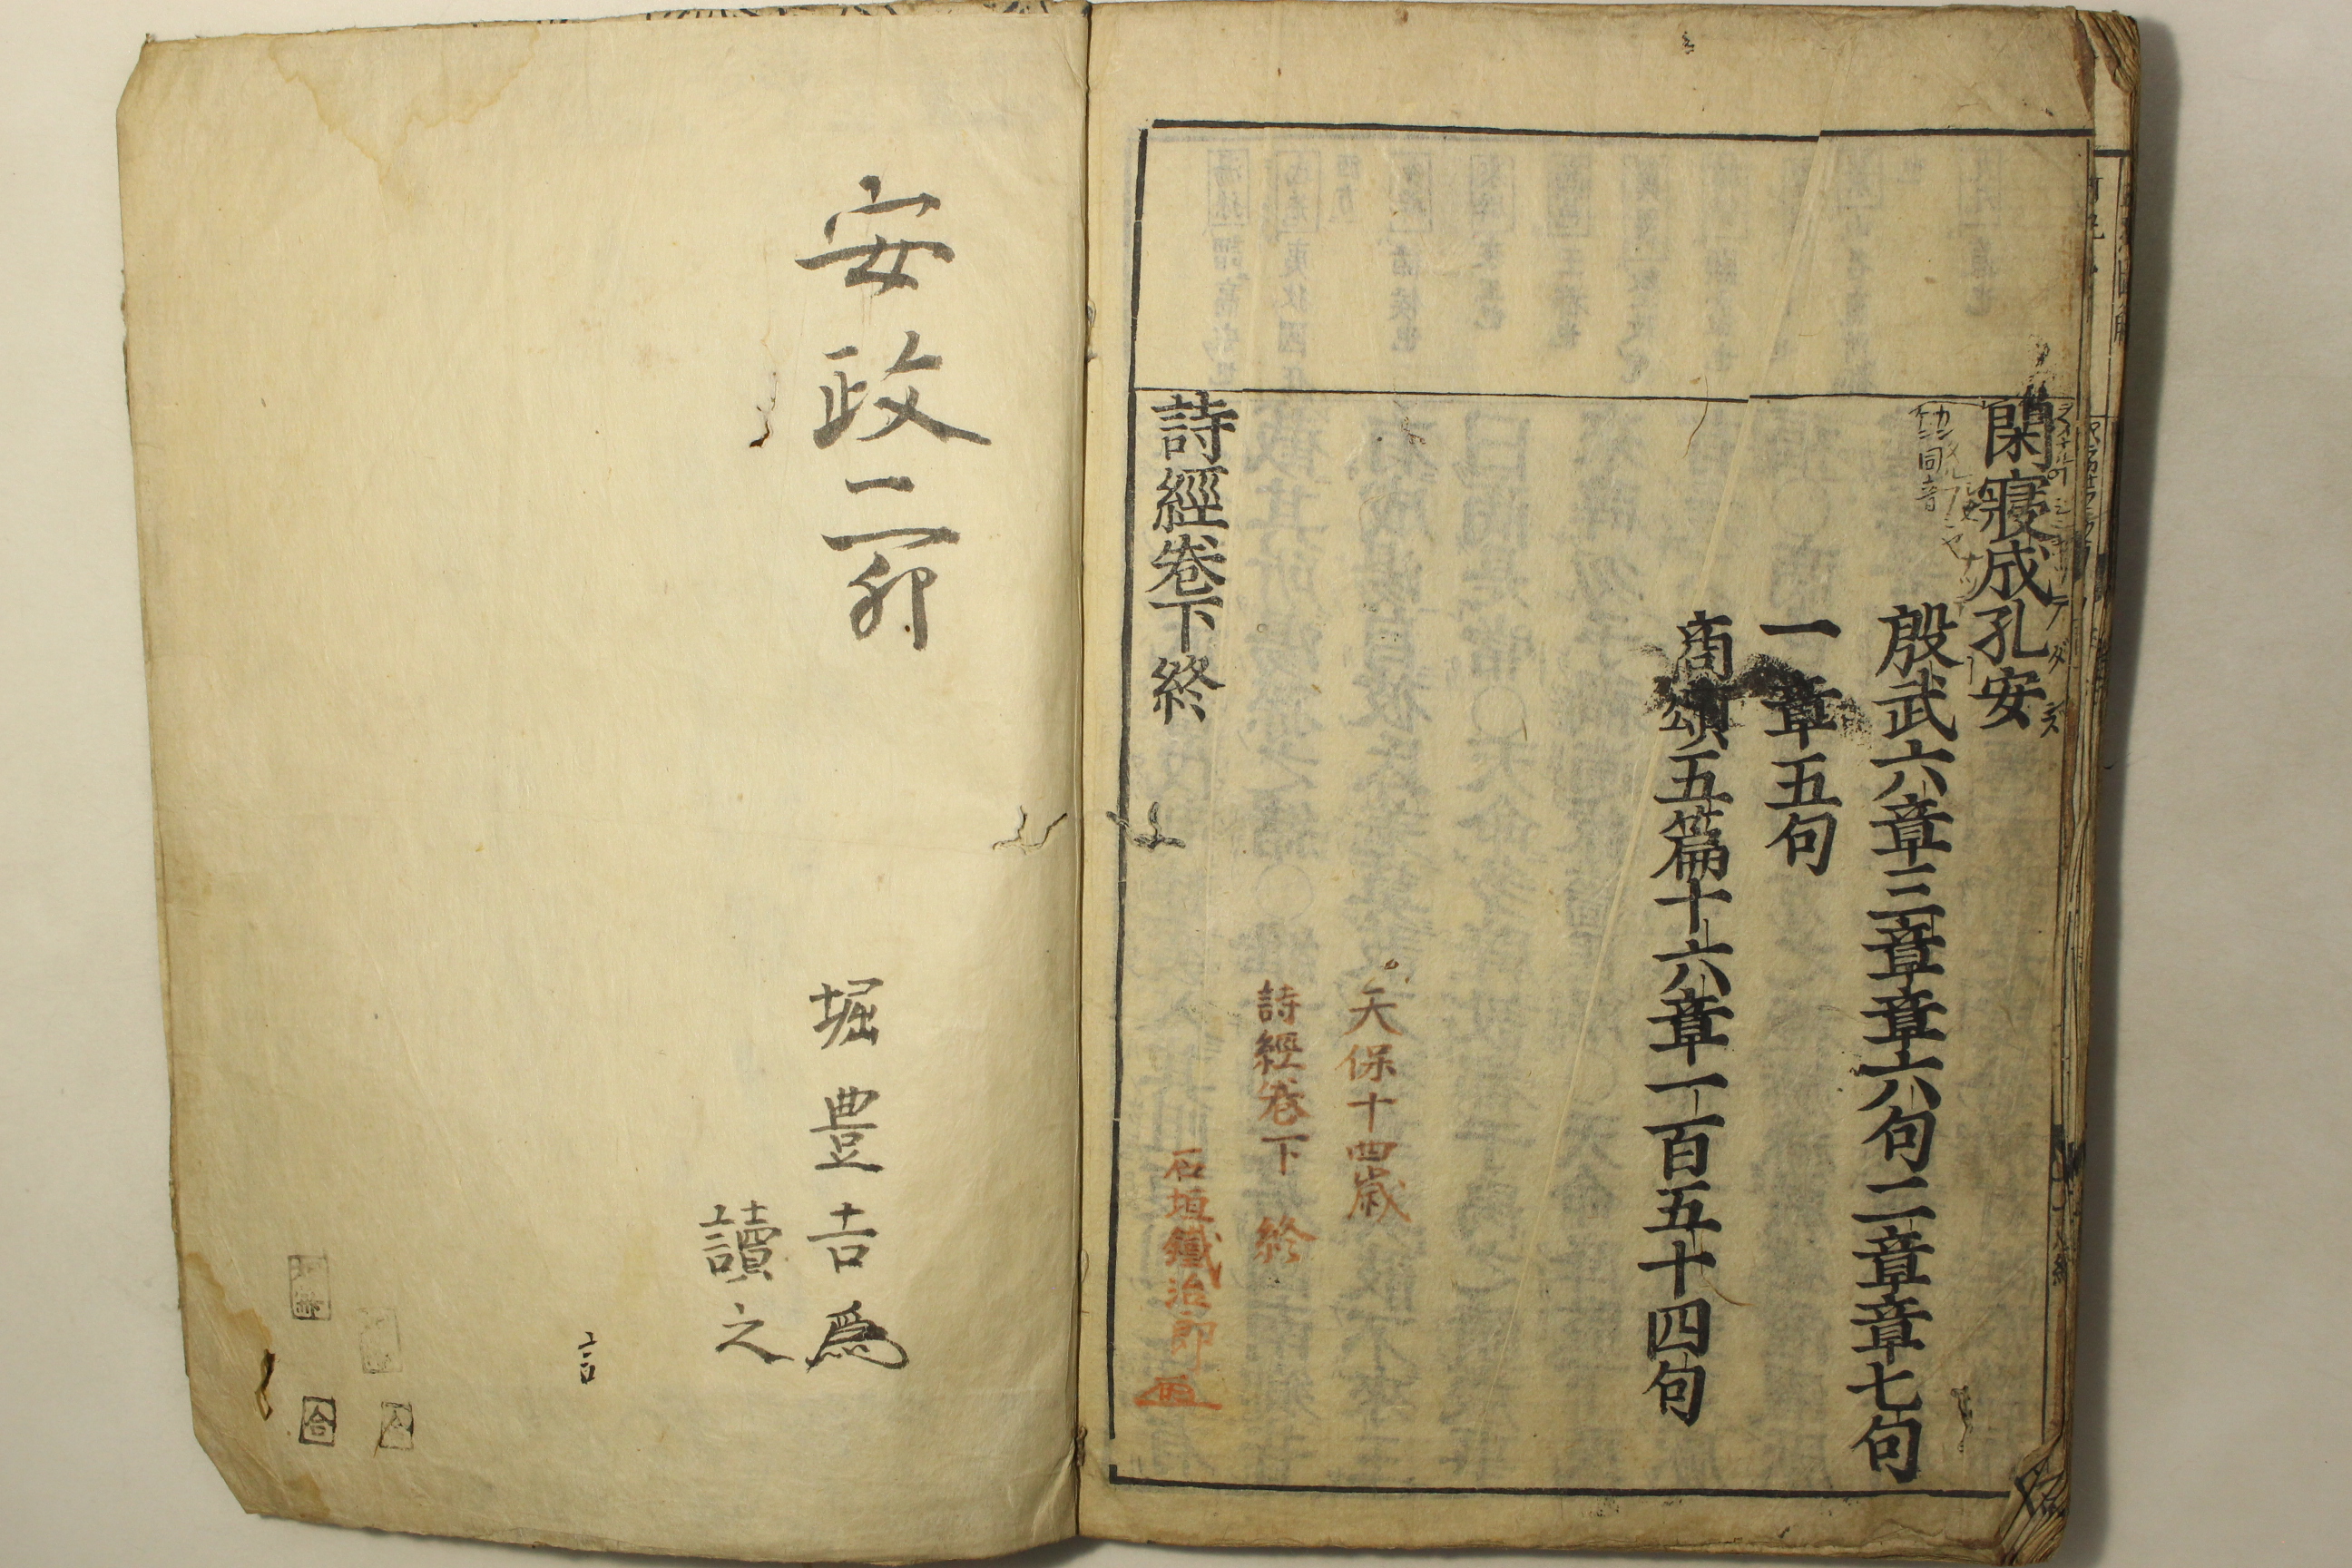 閑寢成孔安
同音
殷武六章三章章六句二章章七句
一章五句
商頌五篇十六章一百五十四句
天保十四歳
詩經卷下 終
石垣鐵治郎
詩經卷下終
安政二卯
堀豊吉爲
讀之
言
合